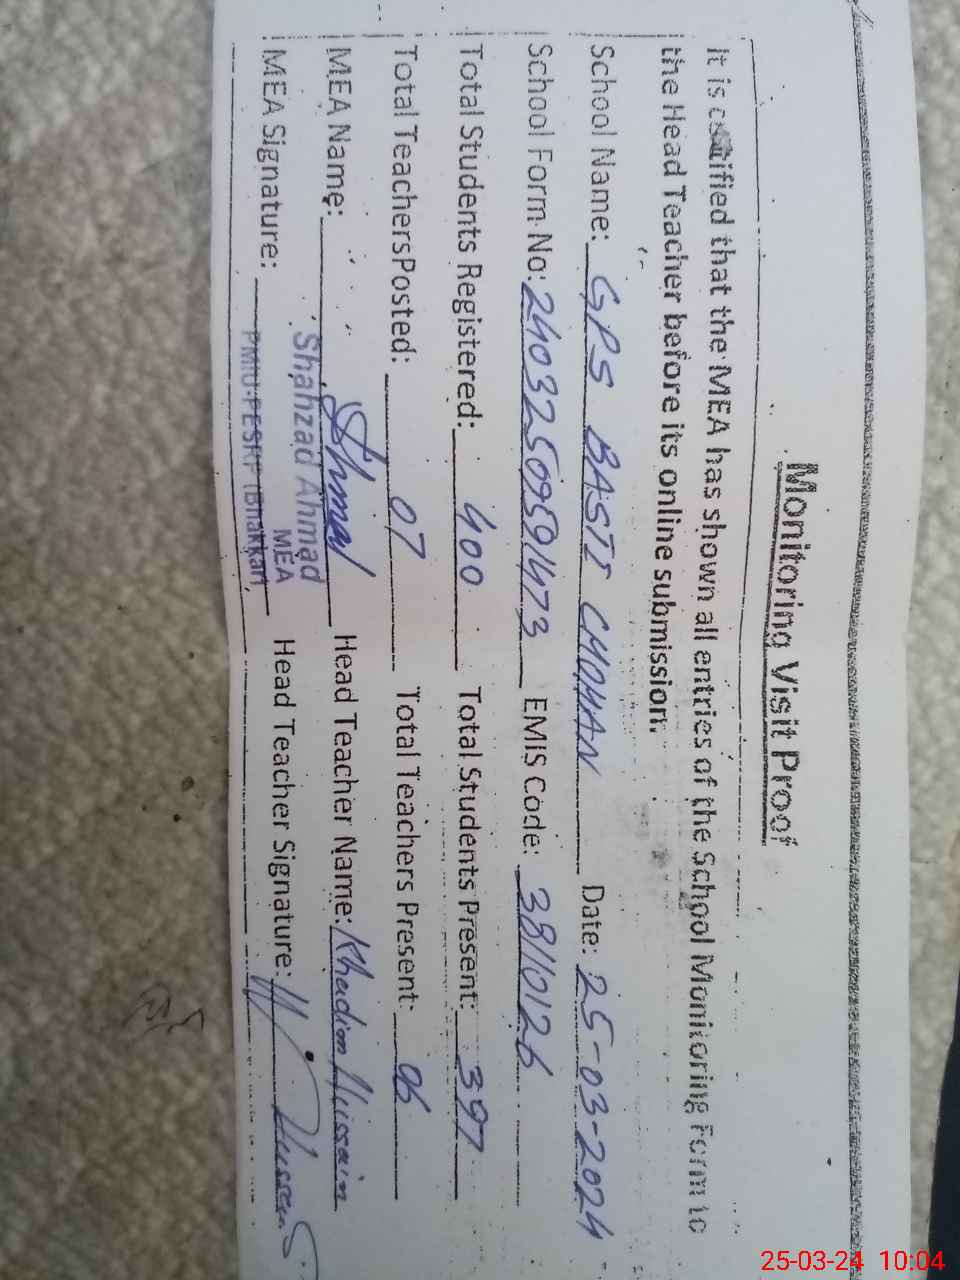 Monitoring Visit Proof
It is certified that the MEA has shown all entries of the School Monitoring Form to
the Head Teacher before its online submission.
School Name: GPS BASTI CHOHAN Date: 25-03-2024
School Form No: 24032509591473 EMIS Code: 38110126
Total Students Registered: 400 Total Students Present: 397
Total Teachers Posted: 07 Total Teachers Present: 06
MEA Name: Head Teacher Name: Khadim Hussain
Shahzad Ahmad
MEA
MEA Signature: Head Teacher Signature:
PMIU-PESRP (Bhakkar)
25-03-24 10:04